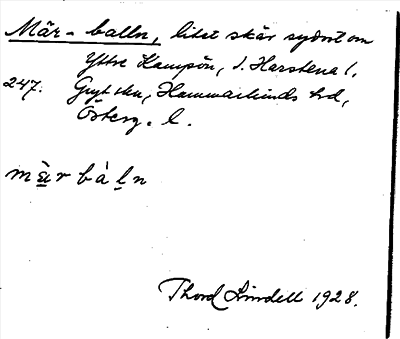 Mär-balln, litet skär sydost om
Yttre Kampön, i. Harstena l.
247. Gryt skn, Hammarkinds hrd,
Österg. l.
märbàl̠n
Thord Lindell 1928.